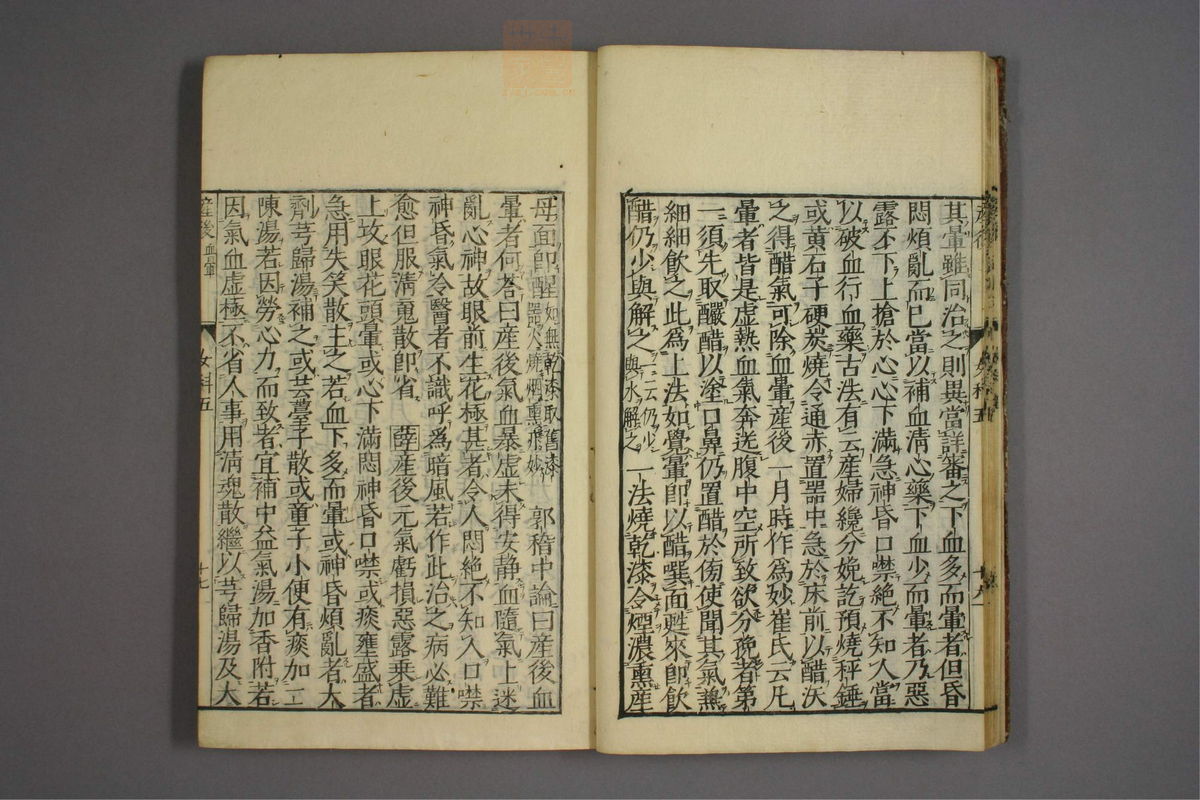 其暈雖同治之則異當詳審之下血多而暈者但昏
悶煩亂而已當以補血清心藥下血少而暈者乃惡
露不下上搶於心心下滿急神昏口噤絶不知人當
以破血行血藥古法有云産婦纔分娩訖預燒秤錘
或黃石子硬炭燒令通赤置器中急於床前以醋沃
之得醋氣可除血暈產後一月時作爲妙崔氏云凡
暈者皆是虚熱血氣奔迸腹中空所致欲分娩者第
一須先取釅醋以塗口鼻仍置醋於傍使聞其氣兼
細細飲之此爲上法如覺暈卽以醋噀面甦來卽飲
醋仍少與解之一云仍少與水解之一法燒乾漆令煙濃熏産
母面卽醒如無乾漆取舊漆器火燒烟熏亦妙郭稽中論曰産後血
暈者何荅曰産後氣血暴虚未得安静血隨氣上迷
亂心神故眼前生花極甚者令人悶絶不知人口噤
神昏氣冷醫者不識呼爲暗風若作此治之病必難
愈但服清䰟散卽省 薛産後元氣虧損惡露乗虚
上攻眼花頭暈或心下滿悶神昏口噤或痰壅盛者
急用失笑散主之若血下多而暈或神昏煩亂者大
劑芎歸湯補之或芸薹子散或童子小便有痰加二
陳湯若因勞心力而致者宜補中益氣湯加香附若
因氣血虚極不省人事用清魂散繼以芎歸湯及大
産後血暈 女科五 十七